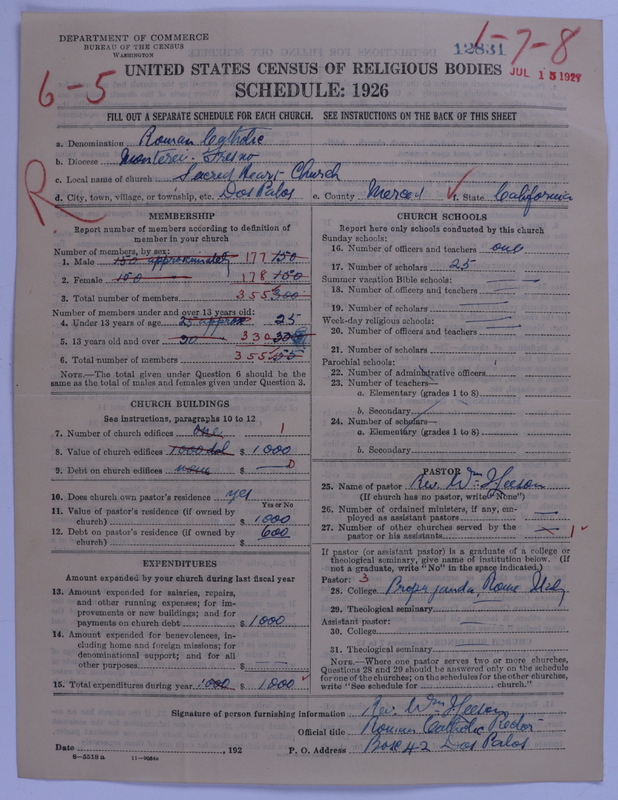 DEPARTMENT OF COMMERCE
BUREAU OF THE CENSUS
WASHINGTON
12831
1-7-8
JUL 15 1927
6-5
UNITED STATES CENSUS OF RELIGIOUS BODIES
SCHEDULE: 1926
FILL OUT A SEPARATE SCHEDULE FOR EACH CHURCH. SEE INSTRUCTIONS ON THE BACK OF THIS SHEET
R
a. Denomination Roman Catholic
b. Diocese Monterei-Fresno
c. Local name of church Sacred Heart Church
d. City, town, village, or township, etc. Dos Palos e. County Merced f. State California
MEMBERSHIP
Report number of members according to definition of
member in your church
Number of members, by sex:
1. Male 150 approximately 177 150
2. Female 150 178 150
3. Total number of members 355 300
Number of members under and over 13 years old:
4. Under 13 years of age 25 approx 25
5. 13 years old and over 330
6. Total number of members 355
NOTE.—The total given under Question 6 should be the
same as the total of males and females given under Question 3.
CHURCH BUILDINGS
See instructions, paragraphs 10 to 12
7. Number of church edifices one 1
8. Value of church edifices 1000 dol $ 1000
9. Debt on church edifices none $ — 0
10. Does church own pastor's residence yes
Yes or No
11. Value of pastor's residence (if owned by
church) $ 1000
12. Debt on pastor's residence (if owned by
church) $ 600
EXPENDITURES
Amount expended by your church during last fiscal year
13. Amount expended for salaries, repairs,
and other running expenses; for im-
provements or new buildings; and for
payments on church debt $ 1000
14. Amount expended for benevolences, in-
cluding home and foreign missions; for
denominational support; and for all
other purposes $ —
15. Total expenditures during year 1000 $ 1000
CHURCH SCHOOLS
Report here only schools conducted by this church
Sunday schools:
16. Number of officers and teachers one
17. Number of scholars 25
Summer vacation Bible schools:
18. Number of officers and teachers —
19. Number of scholars —
Week-day religious schools:
20. Number of officers and teachers —
21. Number of scholars
Parochial schools:
22. Number of administrative officers
23. Number of teachers—
a. Elementary (grades 1 to 8)
b. Secondary
24. Number of scholars—
a. Elementary (grades 1 to 8)
b. Secondary
PASTOR
25. Name of pastor Rev. Wm
(If church has no pastor, write "None")
26. Number of ordained ministers, if any, em-
ployed as assistant pastors —
27. Number of other churches served by the
pastor or his assistants — 1
If pastor (or assistant pastor) is a graduate of a college or
theological seminary, give name of institution below. (If
not a graduate, write "No" in the space indicated.)
Pastor: 3
28. College Propaganda, Rome Italy
29. Theological seminary —
Assistant pastor:
30. College
31. Theological seminary
NOTE.—Where one pastor serves two or more churches,
Questions 28 and 29 should be answered only on the schedule
for one of the churches; on the schedules for the other churches,
write "See schedule for church."
Signature of person furnishing information Rev. Wm
Official title Roman Catholic Rector
Date , 192 P. O. Address Box 42 Dos Palos
8—5518 a